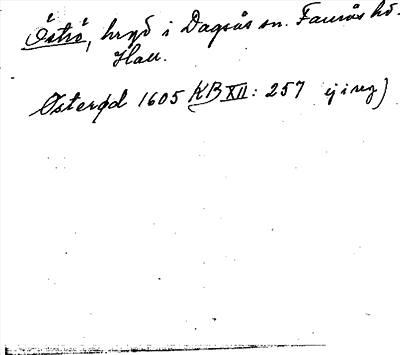 Öströ, hrgd i Dagsås sn. Faurås hd.
Hall.
Østerød 1605 KB XII: 257 ej i reg)